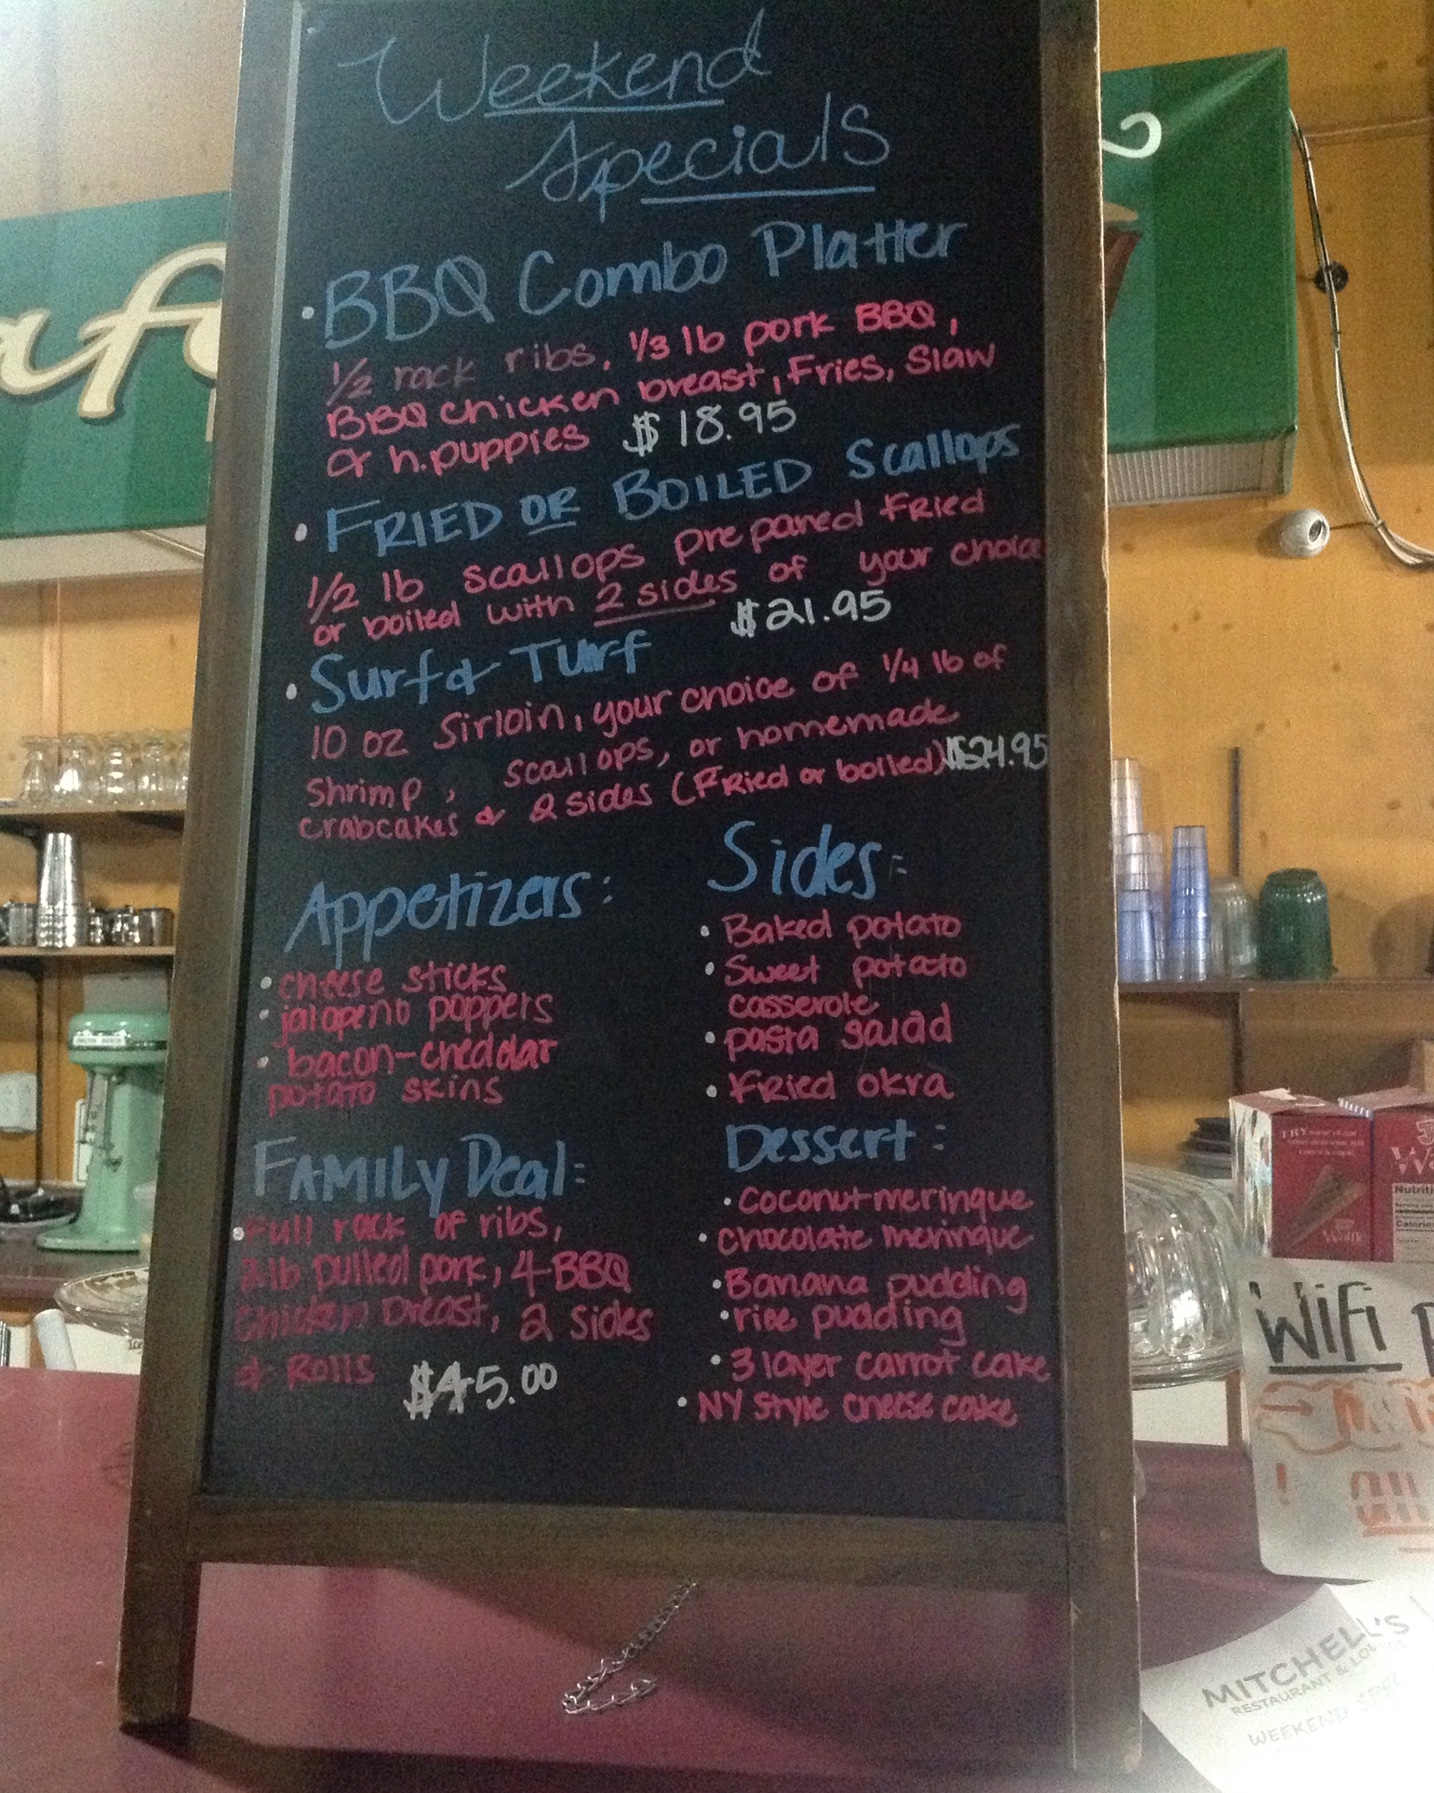 Weekend
Specials
• BBQ Combo Platter
1/2 rack ribs, 1/3 lb pork BBQ,
BBQ chicken breast, Fries, Slaw
& h.puppies $18.95
• FRIED OR BOILED Scallops
1/2 lb scallops prepared Fried
or boiled with 2 sides of your choice
$21.95
• Surf & Turf
10 oz Sirloin, your choice of 1/4 lb of
Shrimp, scallops, or homemade
crabcakes & 2 sides (Fried or boiled) $24.95
Appetizers:
• cheese sticks
• jalapeno poppers
• bacon-cheddar
potato skins
FAMILY Deal:
• Full rack of ribs,
2 lb pulled pork, 4 BBQ
chicken breast, 2 sides
& Rolls $45.00
Sides:
• Baked potato
• Sweet potato
casserole
• pasta salad
• Fried okra
Dessert:
• coconut meringue
• chocolate meringue
• Banana pudding
• rice pudding
• 3 layer carrot cake
• NY style cheese cake
TRY
Nutriti
Calorie
WiFi
MITCHELL'S
RESTAURANT &
WEEKEND